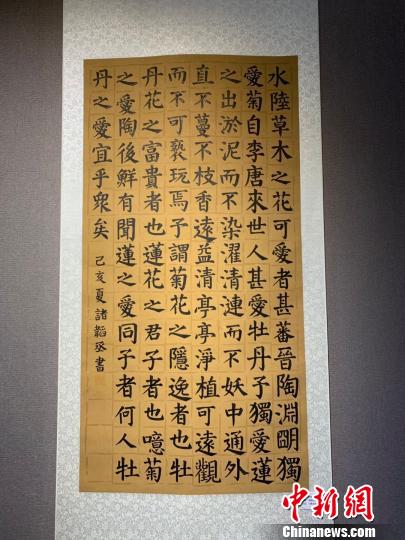 水陸草木之花可愛者甚蕃晉陶淵明獨
愛菊自李唐來世人甚愛牡丹子獨愛蓮
之出淤泥而不染濯清漣而不妖中通外
直不蔓不枝香遠益清亭亭淨植可遠觀
而不可褻玩焉子謂菊花之隱逸者也牡
丹花之富貴者也蓮花之君子者也噫菊
之愛陶後鮮有聞蓮之愛同子者何人牡
丹之愛宜乎衆矣 己亥夏諸韜丞書
中新网
Chinanews.com